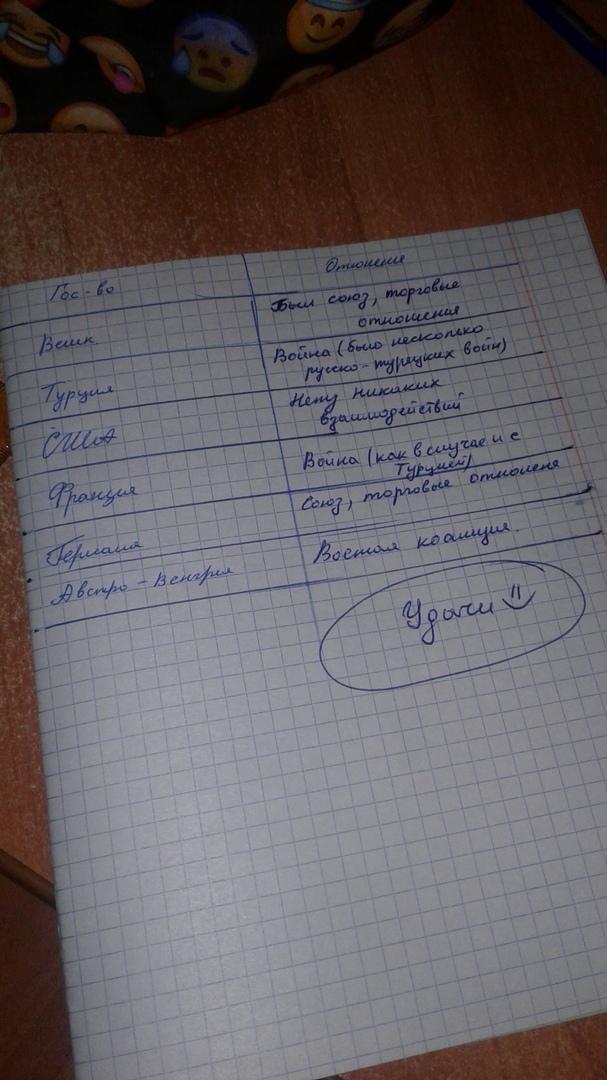 Гос-во
Отношение
Был союз, торговые
отношения
Велик.
Война (было несколько
русско-турецких войн)
Турция
Нету никаких
взаимодействий
США
Война (как в случае и с
Турцией)
Франция
Союз, торговые отношеня
Германия
Восстал коалиция.
Австро-Венгрия
Удачи